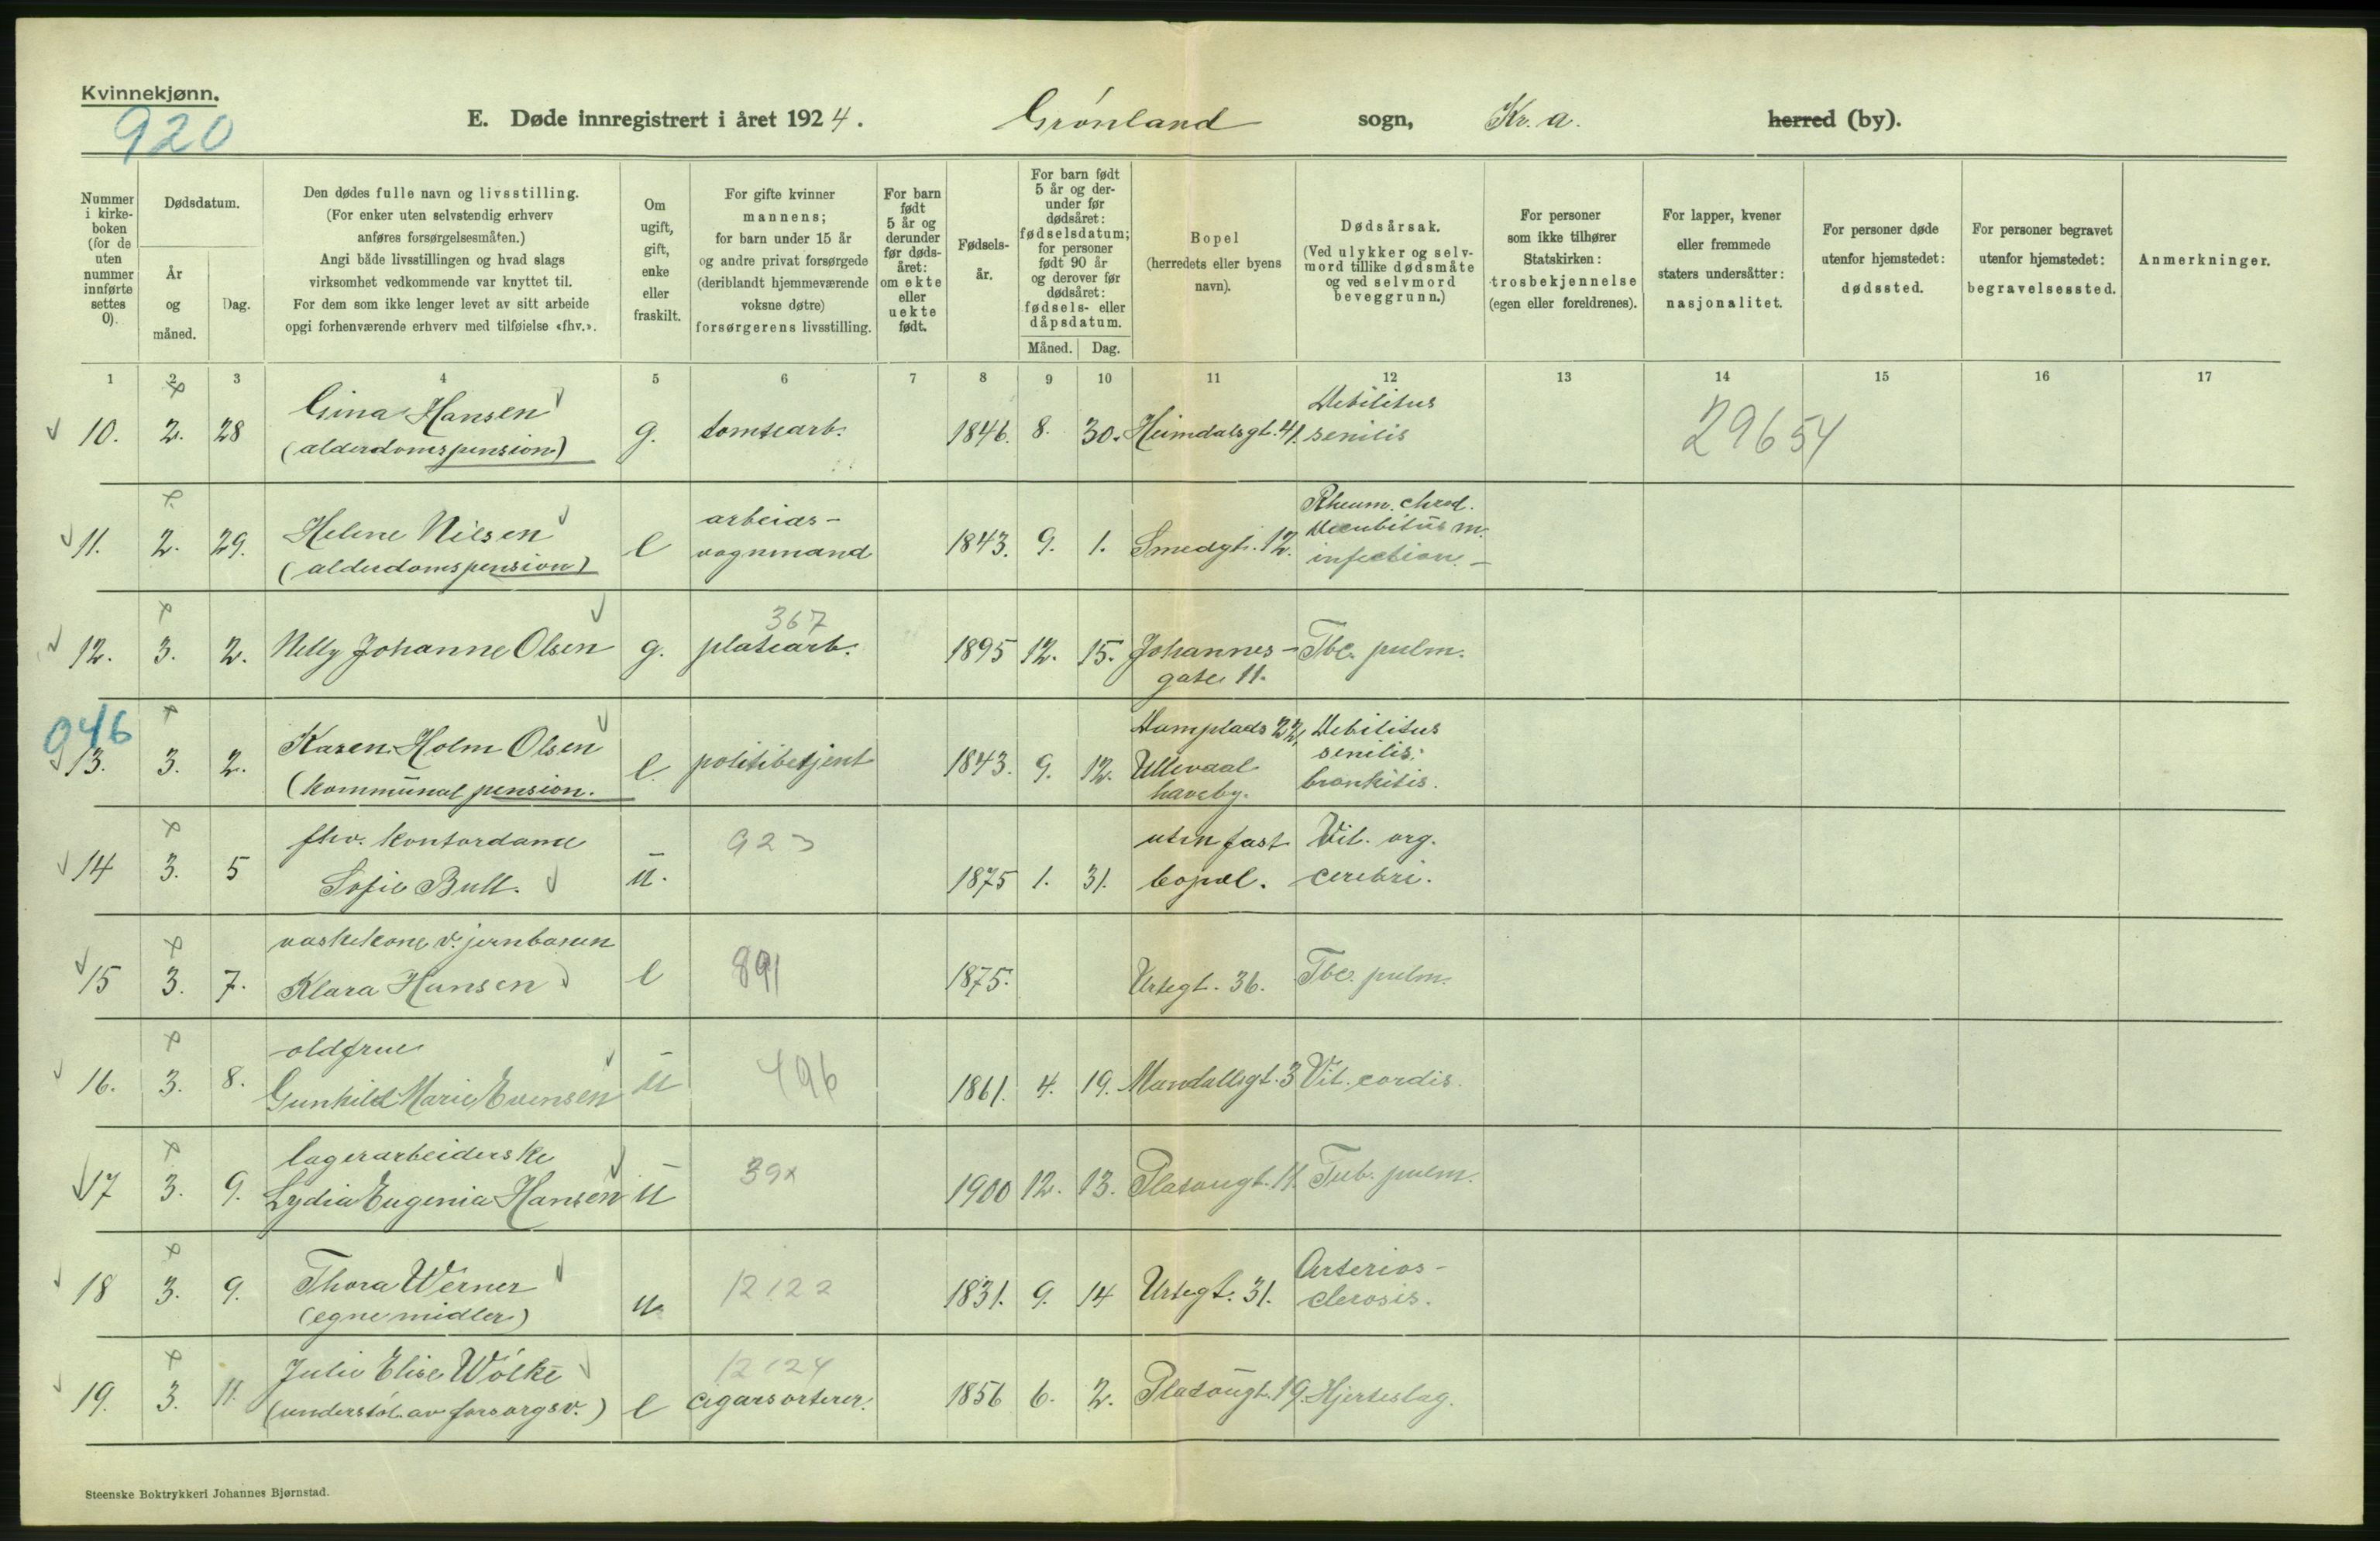 Kvinnekjønn.
920
E. Døde innregistrert i året 1924. Grönland sogn, Kr.a. herred (by).
Nummer i kirke-boken (for de uten nummer innførte settes 0).
Dødsdatum.
År og måned.
Dag.
Den dødes fulle navn og livsstilling.
(For enker uten selvstendig erhverv
anføres forsørgelsesmåten.)
Angi både livsstillingen og hvad slags
virksomhet vedkommende var knyttet til.
For dem som ikke lenger levet av sitt arbeide
opgi forhenværende erhverv med tilføielse «fhv.».
Om ugift, gift, enke eller fraskilt.
For gifte kvinner
mannens;
for barn under 15 år
og andre privat forsørgede
(deriblandt hjemmeværende
voksne døtre)
forsørgerens livsstilling.
For barn født 5 år og derunder før døds-året: om ekte eller uekte født.
Fødsels-år.
For barn født 5 år og der-under før dødsåret: fødselsdatum; for personer født 90 år og derover før dødsåret: fødsels- eller dåpsdatum.
Måned. Dag.
Bopel
(herredets eller byens
navn).
Dødsårsak.
(Ved ulykker og selv-
mord tillike dødsmåte
og ved selvmord
beveggrunn.)
For personer
som ikke tilhører
Statskirken:
trosbekjennelse
(egen eller foreldrenes).
For lapper, kvener
eller fremmede
staters undersåtter:
nasjonalitet.
For personer døde
utenfor hjemstedet:
dødssted.
For personer begravet
utenfor hjemstedet:
begravelsessted.
Anmerkninger.
1 2 3 4 5 6 7 8 9 10 11 12 13 14 15 16 17
10. 2. 28 Gina Hansen
(alderdomspension) g. tomtearb. 1846. 8. 30. Heimdalsgt. 41. Debilitus
senilis 29654
11. 2. 29. Helene Nilsen
(alderdomspension) e arbeids-
vognmand 1843. 9. 1. Smedgt. 12. Rheum. chron.
Decubitus m.
infection.
12. 3. 2. Nelly Johanne Olsen g. 367
platearb. 1895 12. 15. Johannes-
gate 11. Tbc. pulm.
946
13. 3. 2. Karen Holm Olsen
(kommunal pension. e. politibetjent 1843. 9. 12. Damplads 22,
Ullevaal
haveby. Debilitus
senilis.
bronkitis.
14 3. 5 fhv. kontordame
Sofie Bull. u. 923 1875 1. 31. uten fast
bopæl. Vit. org.
cerebri.
15 3. 7. vaskekone v. jernbanen
Klara Hansen e 891 1875. Urtegt. 36. Tbc. pulm.
16. 3. 8. oldfrue
Gunhild Marie Evensen u 496 1861. 4. 19. Mandallsgt. 3 Vit. cordis.
17 3. 9. lagerarbeiderske
Lydia Eugenia Hansen u 39x 1900 12. 13. Platougt. 11. Tub. pulm.
18 3. 9. Thora Werner
(egne midler) u. 12122 1831. 9. 14 Urtegt. 31. Arterios-
clerosis.
19. 3. 11. Julie Elise Wölke
(understöt. av forsorgsv.) e 12124
cigarsorterer. 1856 6. 2. Platougt. 19. Hjerteslag.
Steenske Boktrykkeri Johannes Bjørnstad.